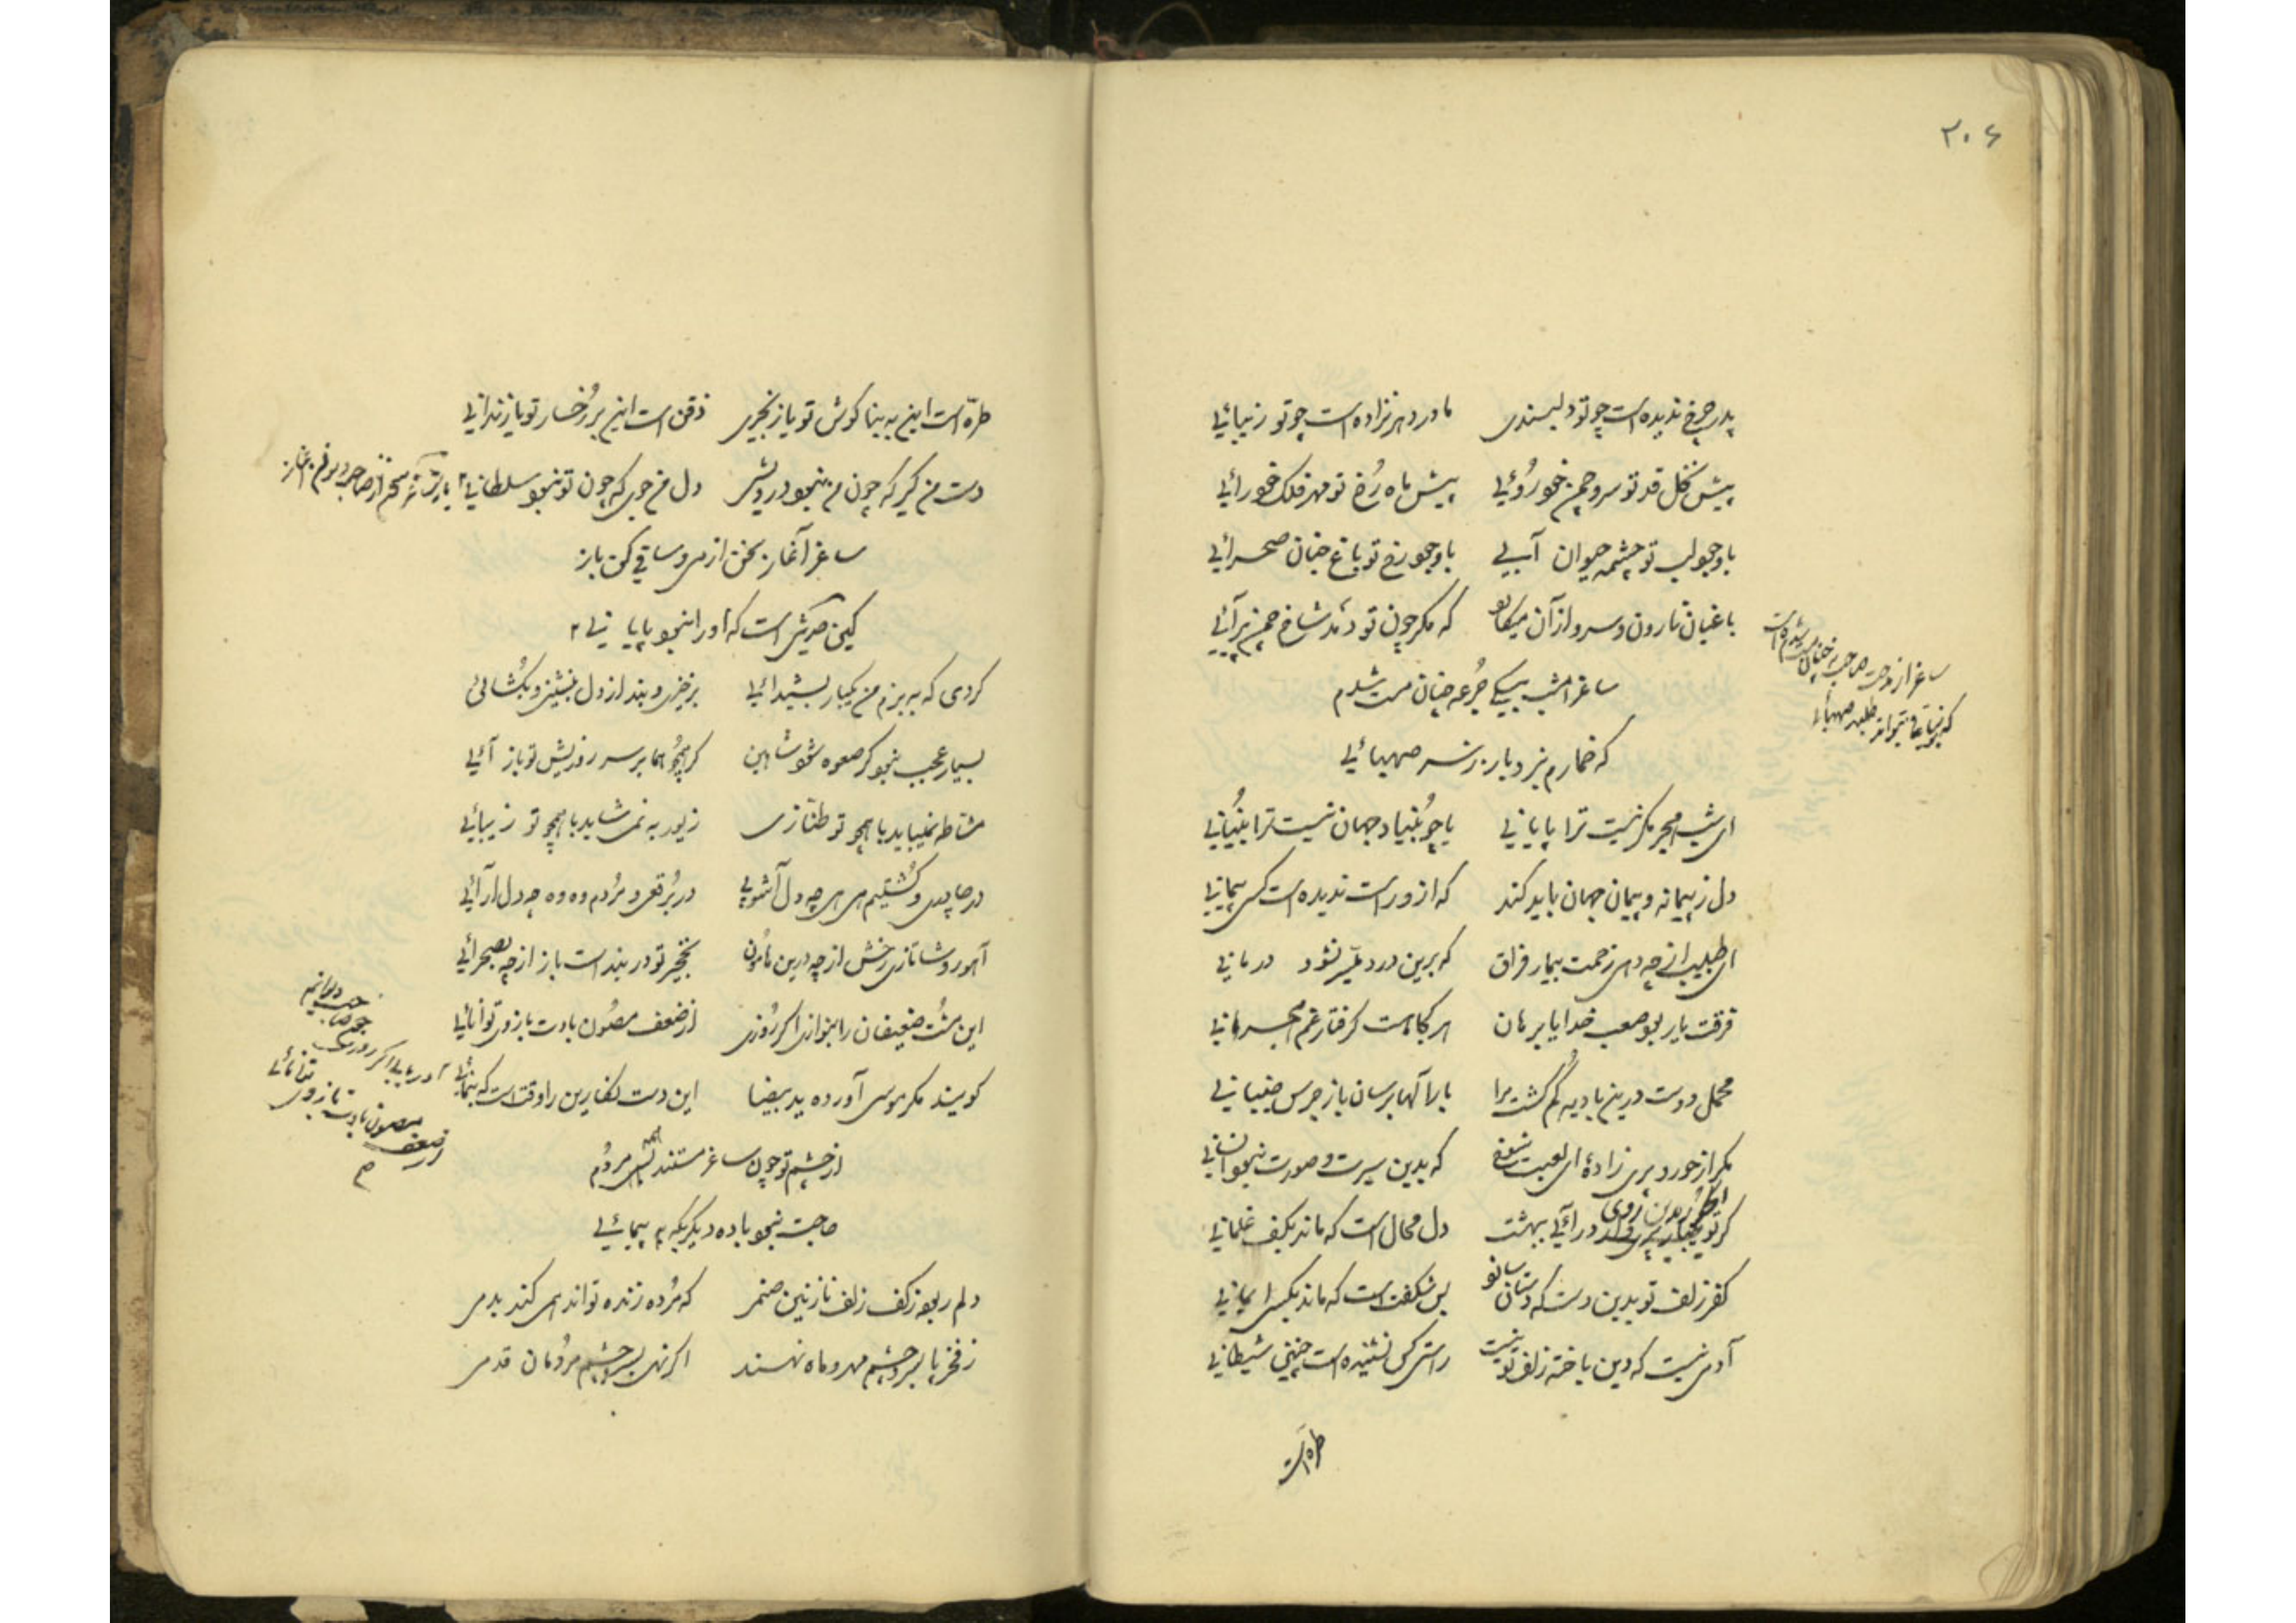 ۳۰۶
پدر چرخ ندیده است چو تو دلبندی مادر دهر نزاده است چو تو زیبائی
پیش نخل قد تو سرو چمن خوروئی پیش ماه رخ تو مهر فلک خورائی
با وجود لب تو چشمه حیوان آبی با وجود رخ تو باغ جنان صحرائی
باغبان نارون و سرو از آن میکارد که مکر چون تو دمد شاخ چمن پیرائی
ساغر امشب بیکی جرعه چنان مست شدم
که خمارم نبرد بار دگر صهبائی
ساغر از مدحت صاحب چنان مست شده است
صهبائی
ای شب هجر مکر نیست ترا پایانی یا چو بنیاد جهان نیست ترا بنیانی
دل ز پیمانه و پیمان جهان باید کند که ازو راست ندیده است کسی پیمانی
ای طبیب از چه دهی زحمت بیمار فراق که برین درد میسر نشود درمانی
فرقت یار بود صعب خدایا برهان هر کجا هست کرفتار غم هجرانی
محمل دوست درین بادیه گم گشت مرا بارالها برسان باز جرس جنبانی
مکر از حور و پری زادهٔ ای لعبت شوخ که بدین سیرت و صورت نبود انسانی
کر تو درآئی بهشت دل محال است که ماند بکف غلمانی
کفر زلف تو بدین دست که دستان بس شکفت است که ماند بکسی ایمانی
آدمی نیست که دین باخته زلف تو نیست راستی کس نشنیده است چنین شیطانی
طره است
طره است این به بناکوش تو یا زنجیری ذقن است این بر رخسار تو یا زندانی
دست من کیر که چون من نبود درویشی دل من جوی که چون تو نبود سلطانی
ساغر آغاز سخن از می و ساقی کن باز
کین حدیثی است که او را نبود پایانی
کردی که به بزم من یکبار بشیدائی برخیزی و بند از دل بنشینی و بکشائی
بسیار عجب نبود کر صعوه شود شاهین کر همچو هما بر سر روزیش تو باز آئی
مشاطه نمیباید با همچو تو طنازی زیور به نمی شاید با همچو تو زیبائی
در چادری و کشتیم هی هی چه دل آشوبی در برقعی و مردم وه وه چه دل آرائی
آهو روشا تازی رخش از چه درین هامون نخجیر تو در بند است باز از چه بصحرائی
این مشت ضعیفان را بنوازی اکر روزی از ضعف مصون بادت بازوی توانائی
کویند مکر موسی آورده ید بیضا این دست نکارین را وقت است که بنمائی
از چشم تو چون ساغر مستند همه مردم
حاجت نبود باده دیکر بکه پیمائی
دلم ربود ز کف زلف نازنین صنمی که مرده زنده تواند همی کند بدمی
ز فخر پا بسر و چشم مهر و ماه نهند اکر نهی بسر و چشم مردمان قدمی